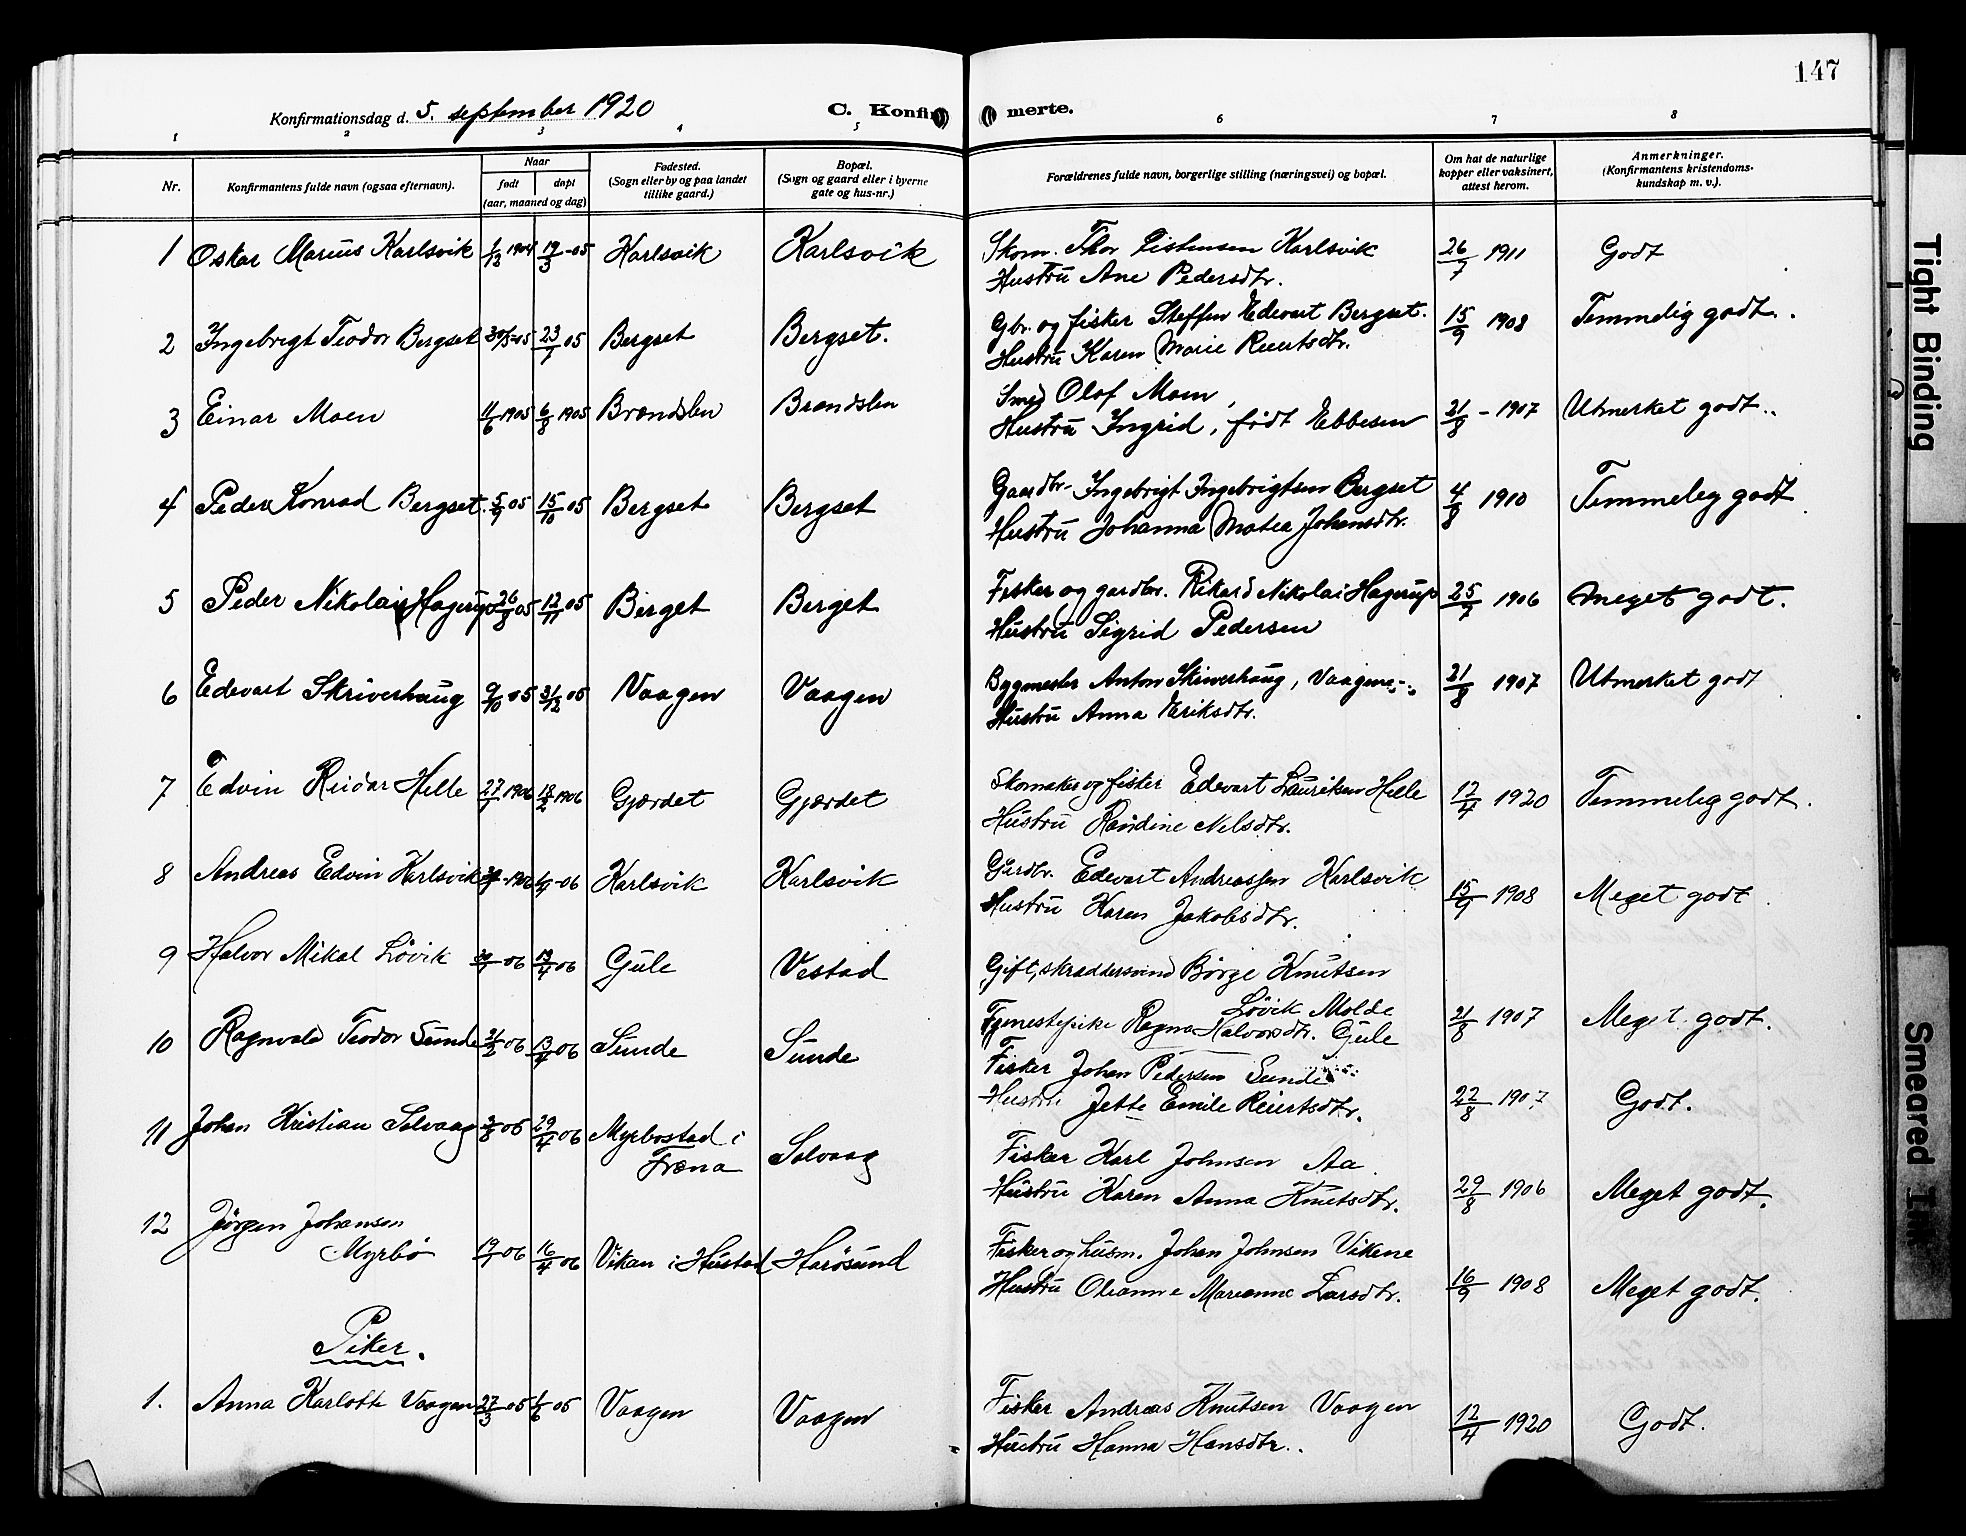 147
Konfirmationsdag d. 5. september 1920 C. Konfir merte.
1 2 3 4 5 6 7 8
Nr. Konfirmantens fulde navn (ogsaa efternavn). Naar født døpt (aar, maaned og dag) Fødested. (Sogn eller by og paa landet tillike gaard.) Bopæl. (Sogn og gaard eller i byerne gate og hus-nr.) Forældrenes fulde navn, borgerlige stilling (næringsvei) og bopæl. Om hat de naturlige kopper eller vaksinert, attest herom. Anmerkninger. (Konfirmantens kristendoms-kundskap m. v.).
1 Oskar Marius Karlsvik 1/12 1904 19/3 -05 Karlsvik Karlsvik Skom. Thor Karlsvik 26/7 1911 Godt
Hustru Ane Pedersdtr.
2 Ingebrigt Teodor Bergset 30/5-05 23/7 05 Bergset Bergset. Gbr. og fisker Steffen Edevart Bergset. 15/9 1908 Temmelig godt.
Hustru Karen Marie Reiertsdtr.
3 Einar Moen 11/6 1905 6/8 1905 Brændslen Brændslen Smed Olof Moen, 21/8 - 1907 Utmerket godt..
Hustru Ingrid, født Ebbesen
4 Peder Konrad Bergset. 5/9 05 15/10 05 Bergset Bergset Gaardbr. Ingebrigt Ingebrigtsen Bergset 4/8 1910 Temmelig godt
Hustru Johanna Matea Johansdtr.
5 Peder Nikolai Hagerup 26/8 05 12/11 05 Berget Berget Fisker og gardbr. Rikard Nikolai Hagerup 25/7 1906 Meget godt.
Hustru Sigrid Pedersen
6 Edevart Skriverhaug 9/10 05 31/12 05 Vaagen Vaagen Bygmester Anton Skriverhaug, Vaagene 21/8 1907 Utmerket godt
Hustru Anna Eriksdtr.
7 Edvin Reidar Helle 27/1 1906 18/2 1906 Gjærdet Gjærdet Skomaker og fisker Edevart Lauritsen Helle 12/4 1920 Temmelig godt.
Hustru Randine Nelsdtr.
8 Andreas Edvin Karlsvik -06 Karlsvik Karlsvik Gardbr. Edevart Andreassen Karlsvik 15/9 1908 Meget godt
Hustru Karen Jakobsdtr.
9 Halvor Mikal Løvik 06 13/4 06 Gule Vestad Gift, skræddersvend Børge Knutsen
Løvik Molde
Tjenestepike Ragna Halvorsdtr. Gule 21/8 1907 Meget godt.
10 Ragnvald Teodor Sunde 21/2 06 13/4 06 Sunde Sunde Fisker Johan Pedersen Sunde
Hustru Jette Emile Reiertsdtr. 22/8 1907 Godt.
11 Johan Kristian Solvaag 06 29/4 06 Myrbostad i Fræna Solvaag Fisker Karl Johnsen Aa
Hustru Karen Anna Knutsdtr. 29/8 1906 Meget godt.
12 Jørgen Johansen
Myrbø 19/1 06 16/4 06 Vikan i Hustad Harøsund Fisker og husm. Johan Johnsen Vikene
Hustru Oleanne Marianne Larsdtr. 16/9 1908 Meget godt.
Piker.
1. Anna Karlotte Vaagen 27/3 05 1/6 05 Vaagen Vaagen Fisker Andreas Knutsen Vaagen 12/4 1920 Godt.
Hustru Hanna Hansdtr.
Tight Binding
Smeared Ink